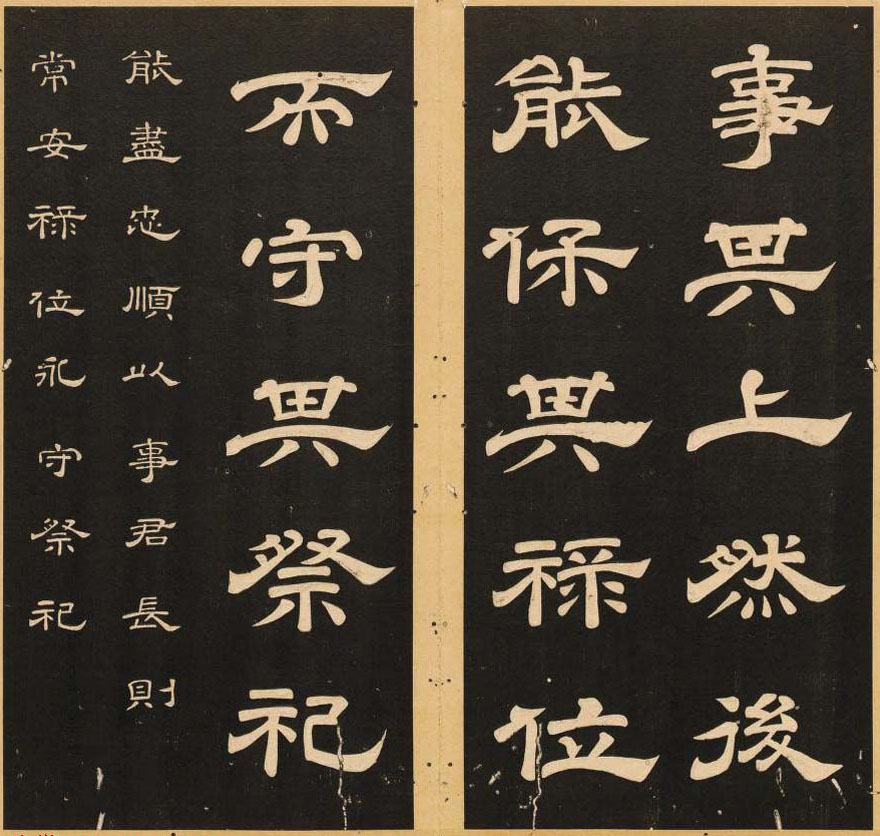 事其上然後
能保其禄位
而守其祭祀
能盡忠順以事君長則
常安禄位永守祭祀